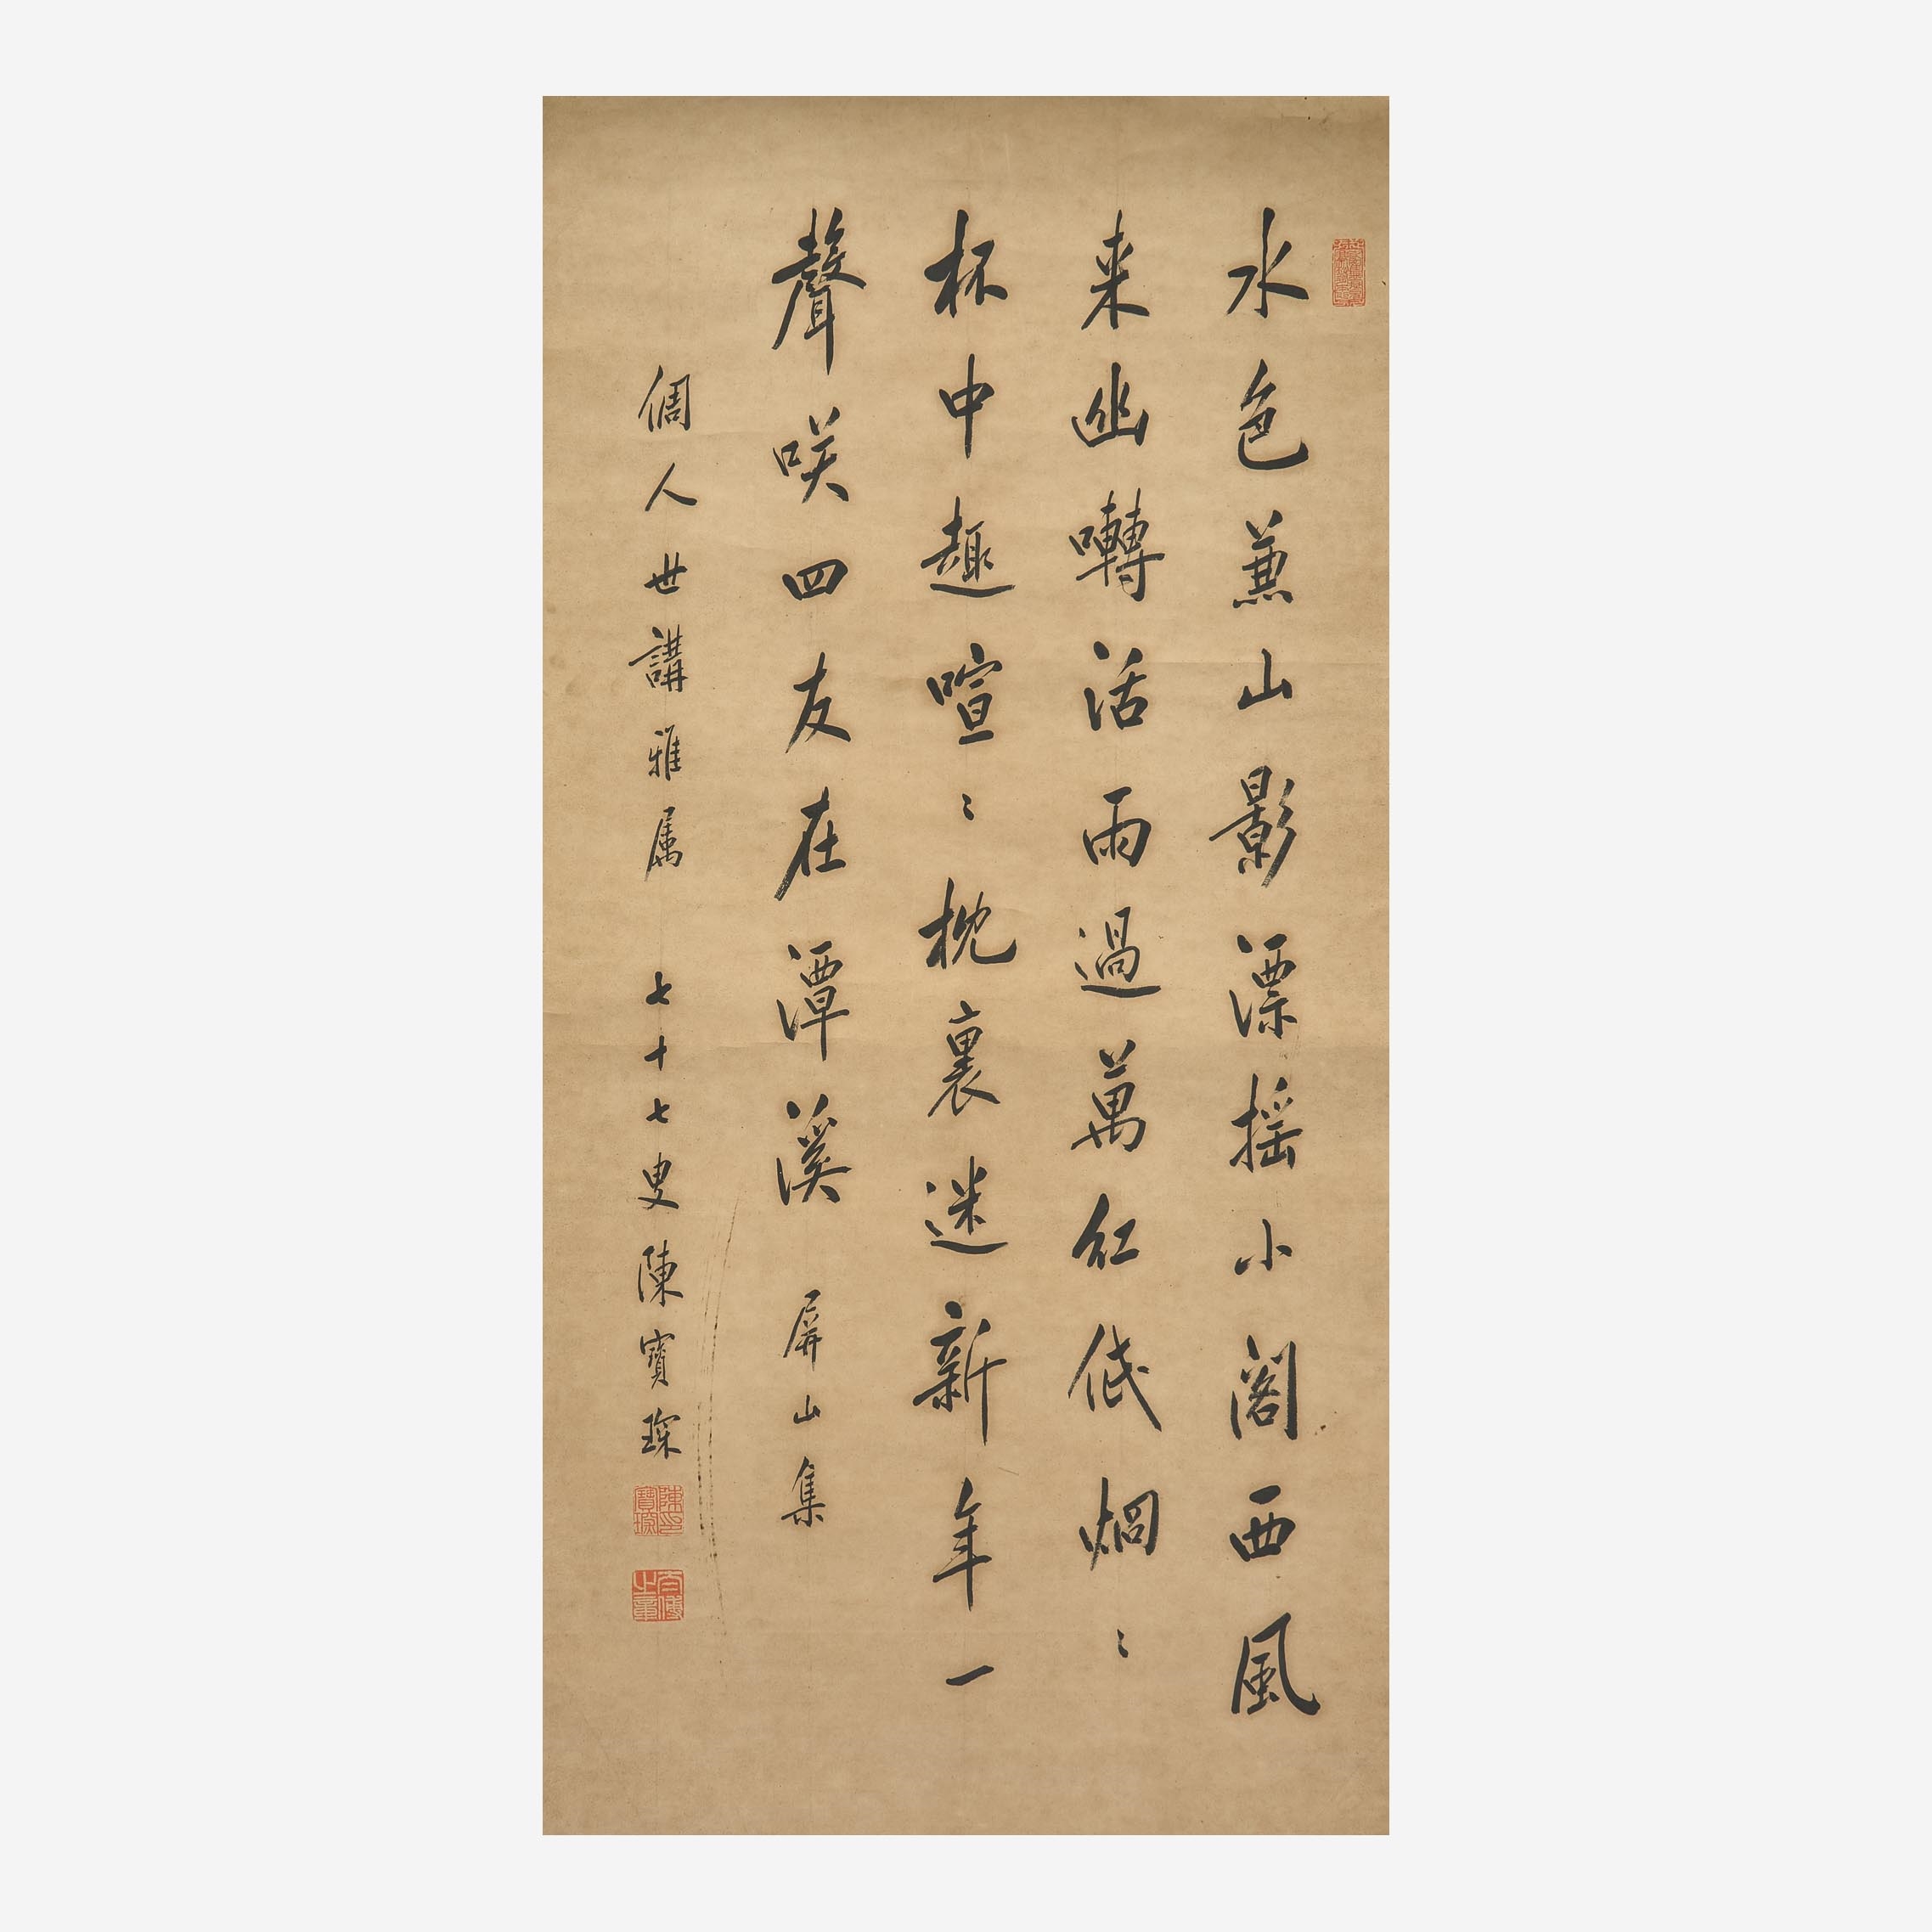 水色兼山影漂摇小閣西風
来幽囀活雨過萬紅低烱〻
杯中趣喧〻枕裏迷新年一
聲咲四友在潭溪 屏山集
倜人世講雅属 七十七叟陳寶琛
陳寶琛印
太傅之章